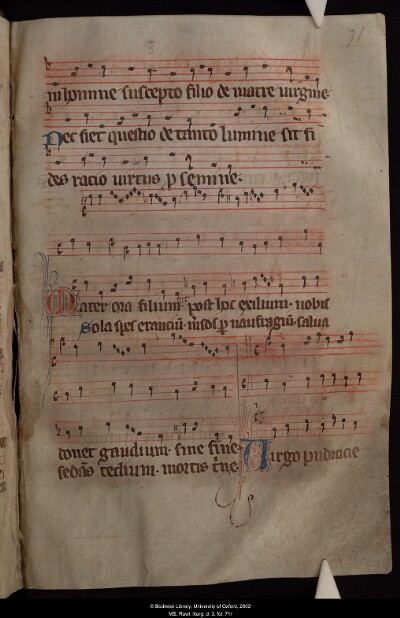 71
in homine suscepto filio de matre uirgine·
Nec fiet questio de tanto lumine sit fi
des racio uirtus p semine·
Mater ora filium· post hoc exilium· nobis
Sola spes erranciū· post naufragiū· salua
donet gaudium· sine fine
sedās tedium· mortis
Uirgo pudicicie
© Bodleian Library, University of Oxford, 2002
MS. Rawl. liturg. d. 3, fol. 71r